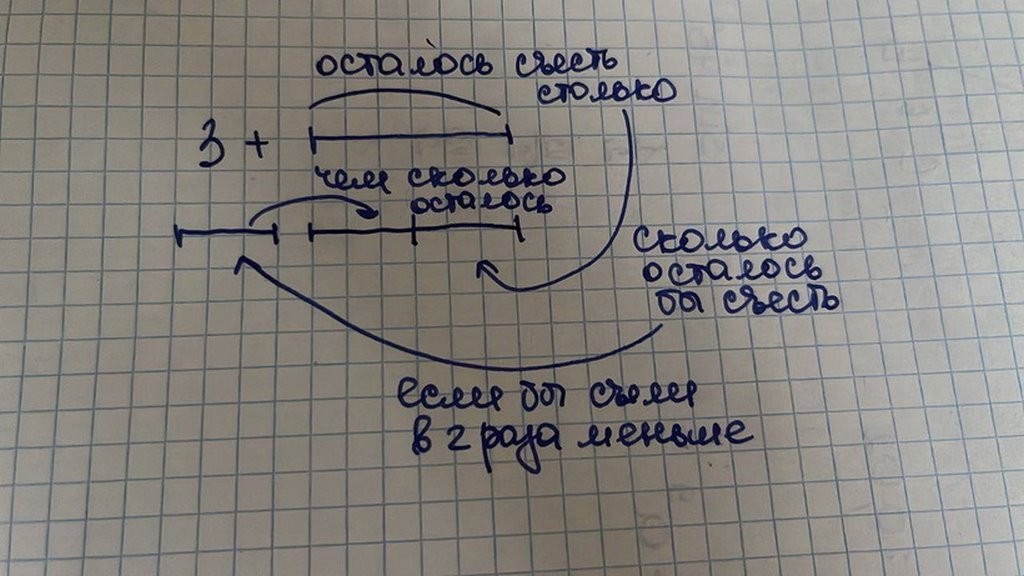 осталось съесть
столько
3 +
чем сколько
осталось
сколько
осталось
бы съесть
если бы съели
в 2 раза меньше